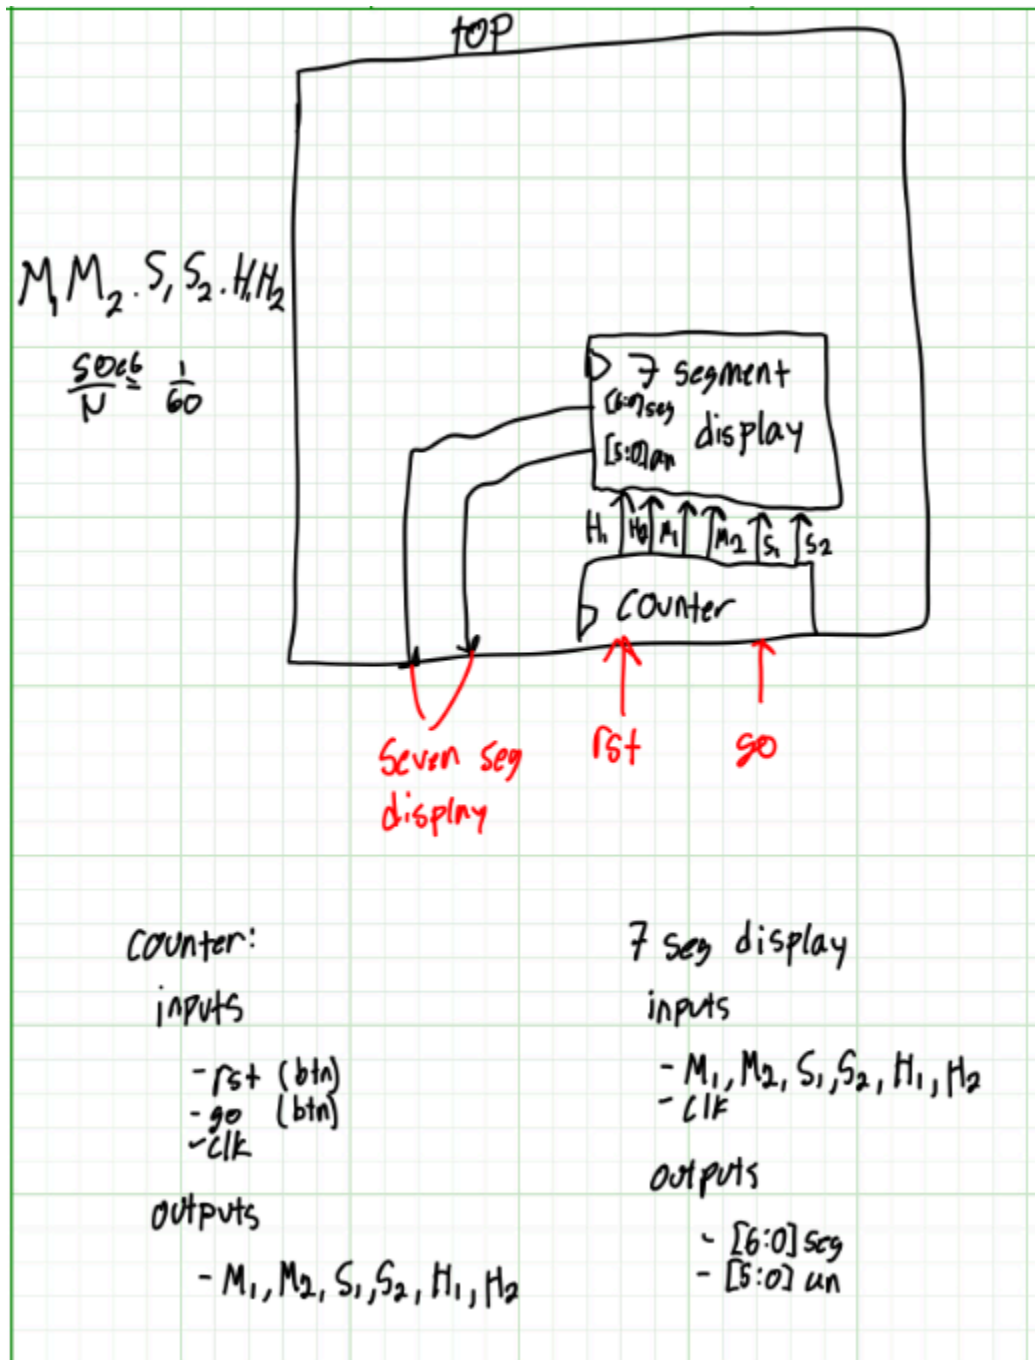 top
M₁M₂.S₁S₂.H₁H₂
50e6/N = 1/60
7 segment
display
[6:0]seg
[5:0]an
H₁ H₂ M₁ M₂ S₁ S₂
counter
rst
go
Seven seg
display
counter:
inputs
- rst (btn)
- go (btn)
- clk
outputs
- M₁, M₂, S₁, S₂, H₁, H₂
7 seg display
inputs
- M₁, M₂, S₁, S₂, H₁, H₂
- clk
outputs
- [6:0] seg
- [5:0] an